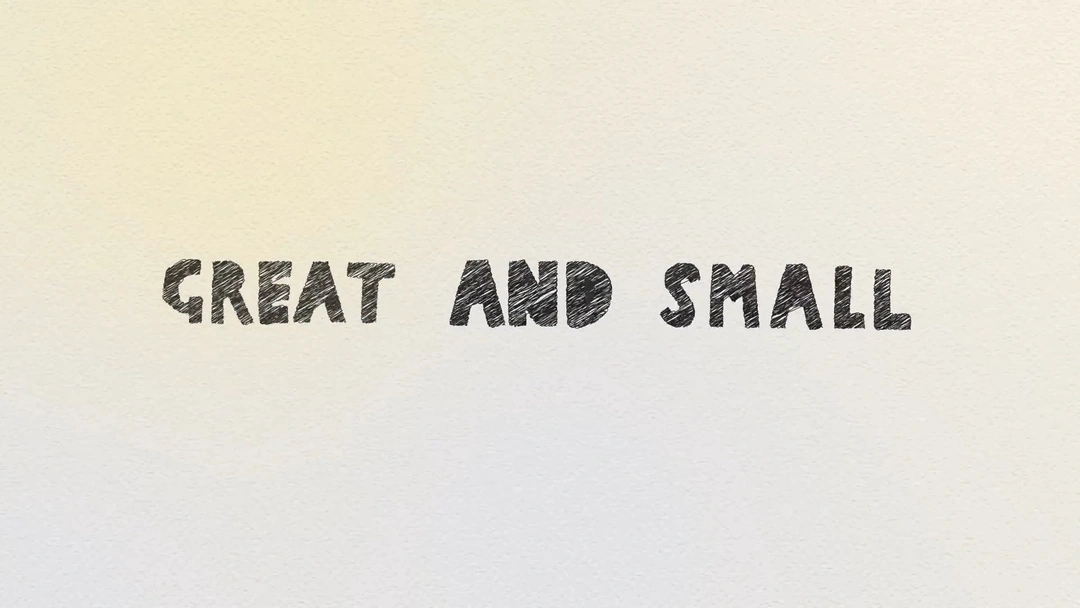 GREAT AND SMALL